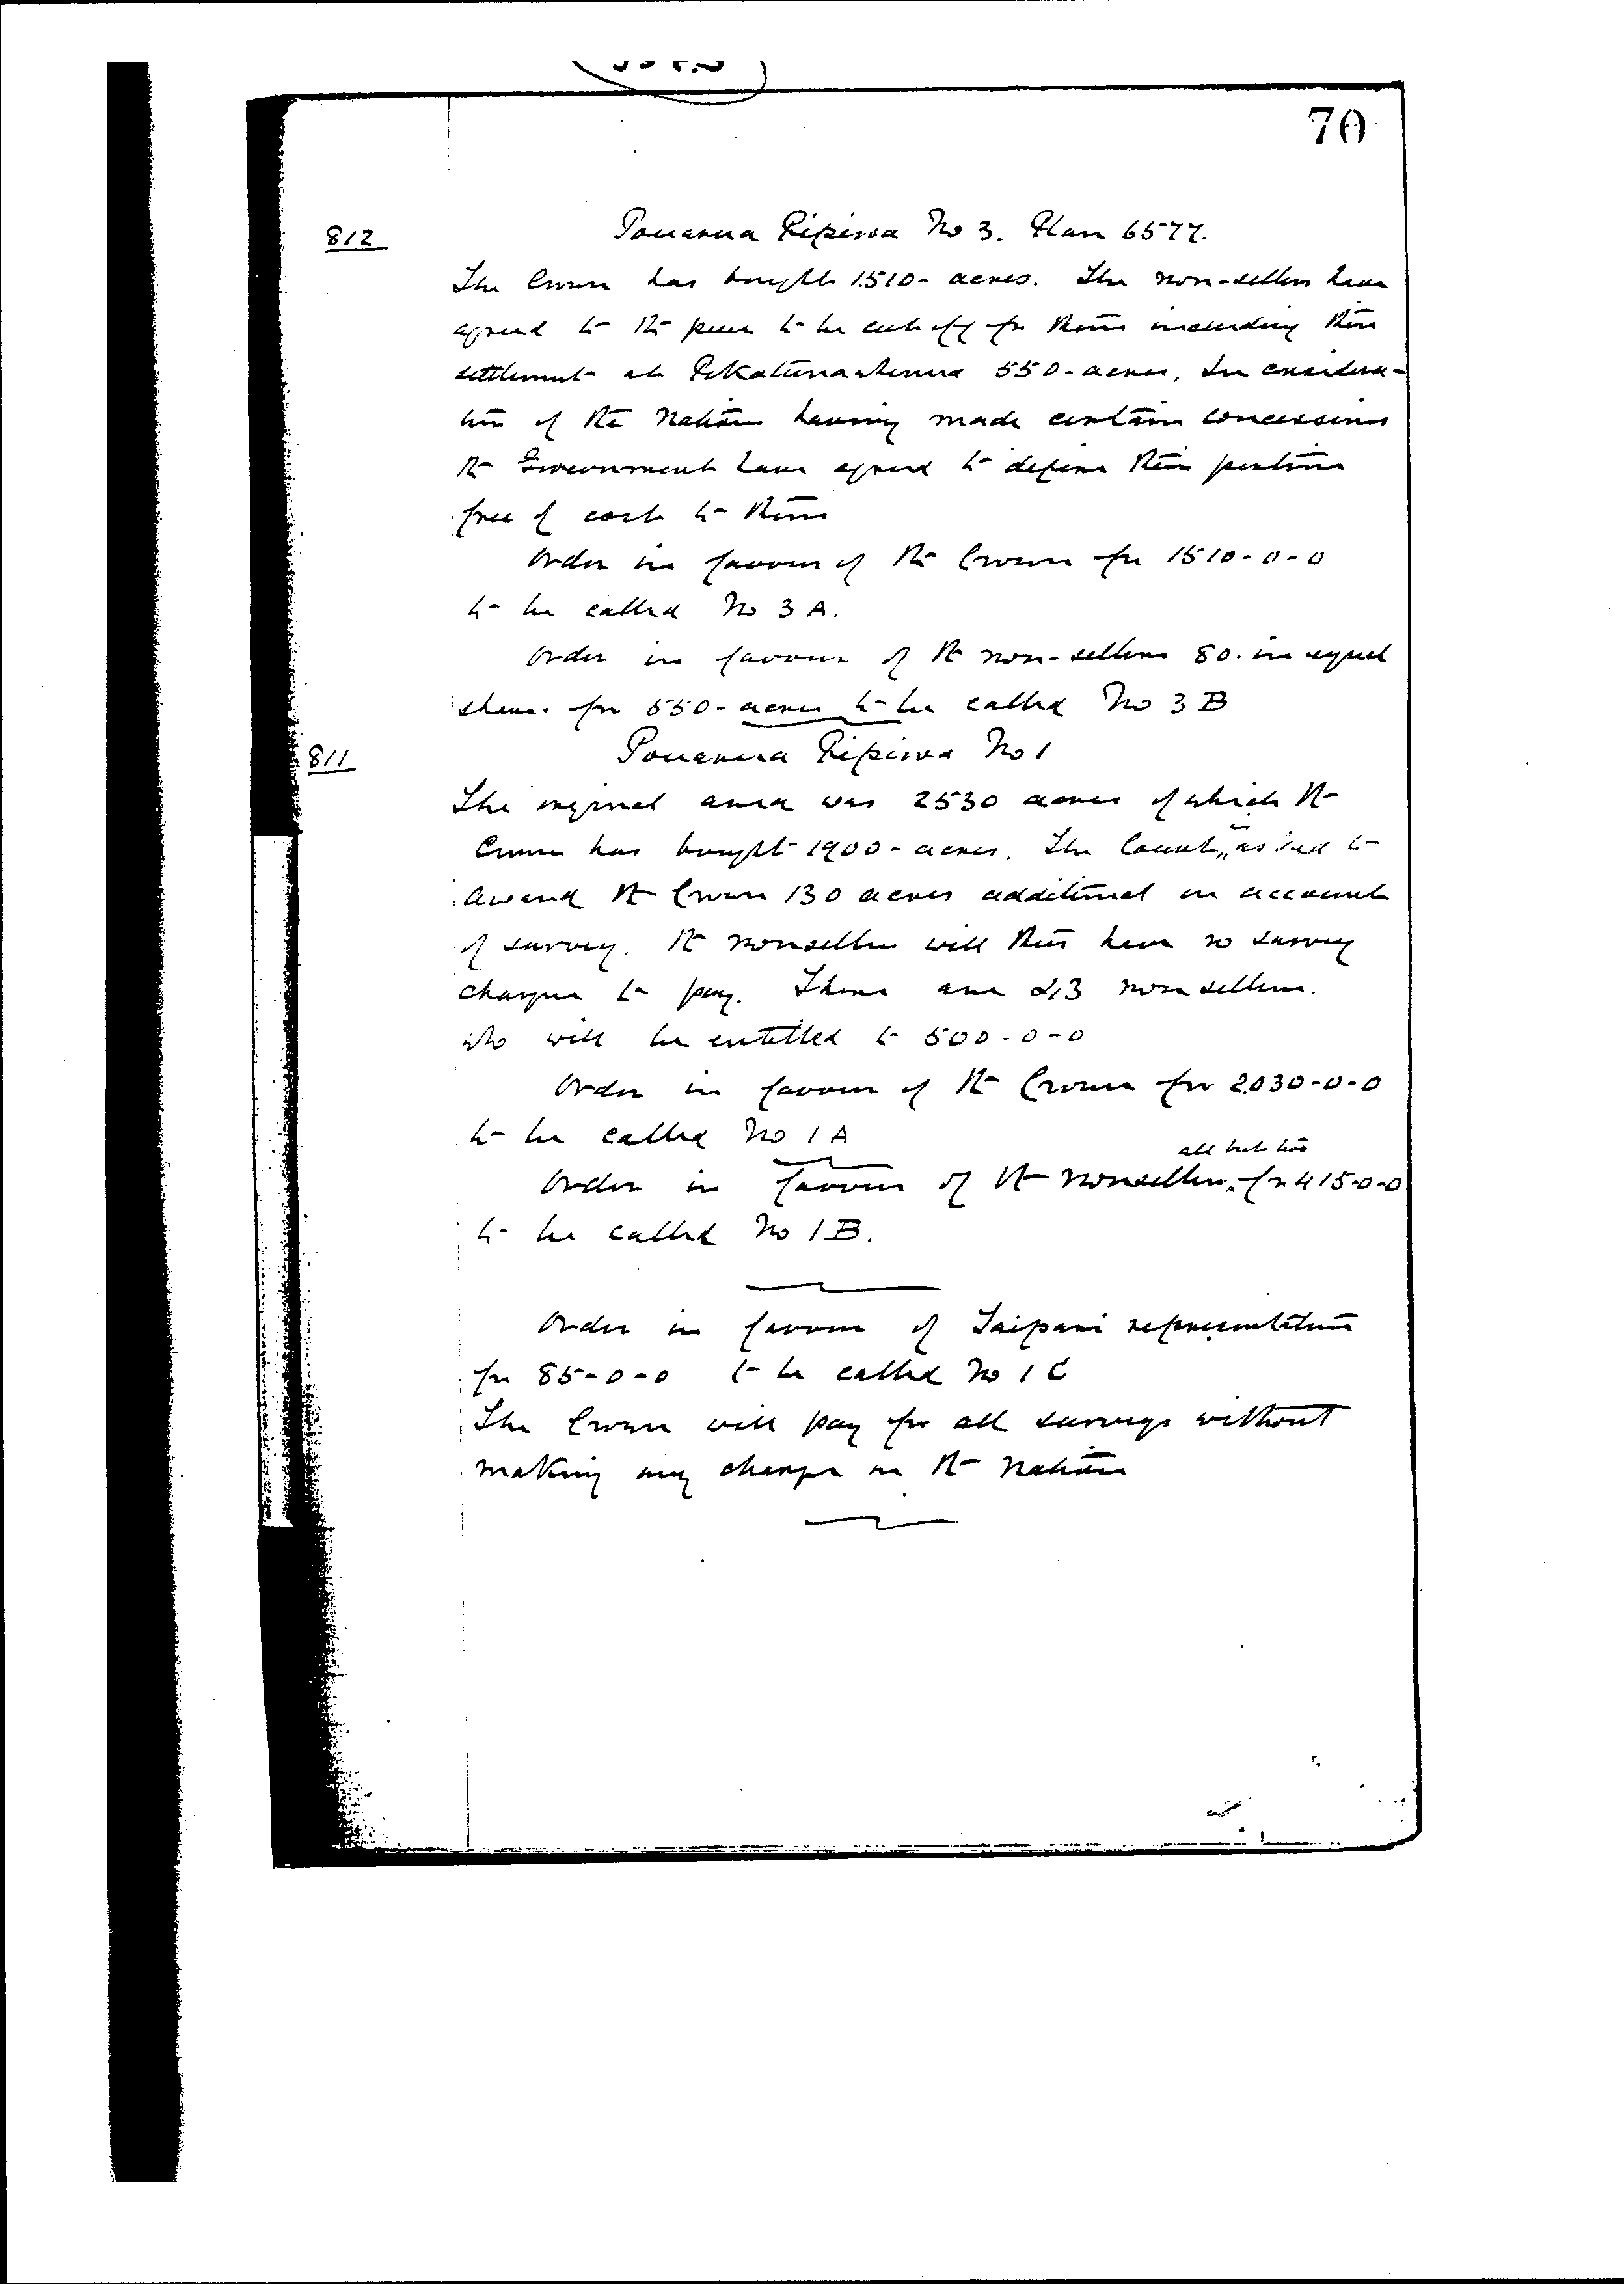 70
812
Pouarua Pipiroa No 3. Plan 6577.
The Crown has bought 1510- acres. The non-sellers have
agreed to the piece to be cut off for them including their
settlement at 550- acres. In considera-
tion of the Natives having made certain concessions
the Government have agreed to define their portion
free of cost to them
Order in favour of the Crown for 1510-0-0
to be called No 3 A.
Order in favour of the non-sellers 80. in equal
shares for 550- acres to be called No 3 B
811
Pouarua Pipiroa No 1
The original area was 2530 acres of which the
Crown has bought 1900- acres. The Court is asked to
award the Crown 130 acres additional on account
of survey. The nonsellers will thus have no survey
charges to pay. There are non sellers.
who will be entitled to 500-0-0
Order in favour of the Crown for 2030-0-0
to be called No 1 A
all but two
Order in favour of the nonsellers for 415-0-0
to be called No 1 B.
Order in favour of Taipari
for 85-0-0 to be called No 1 C
The Crown will pay for all surveys without
making any charge on the Natives